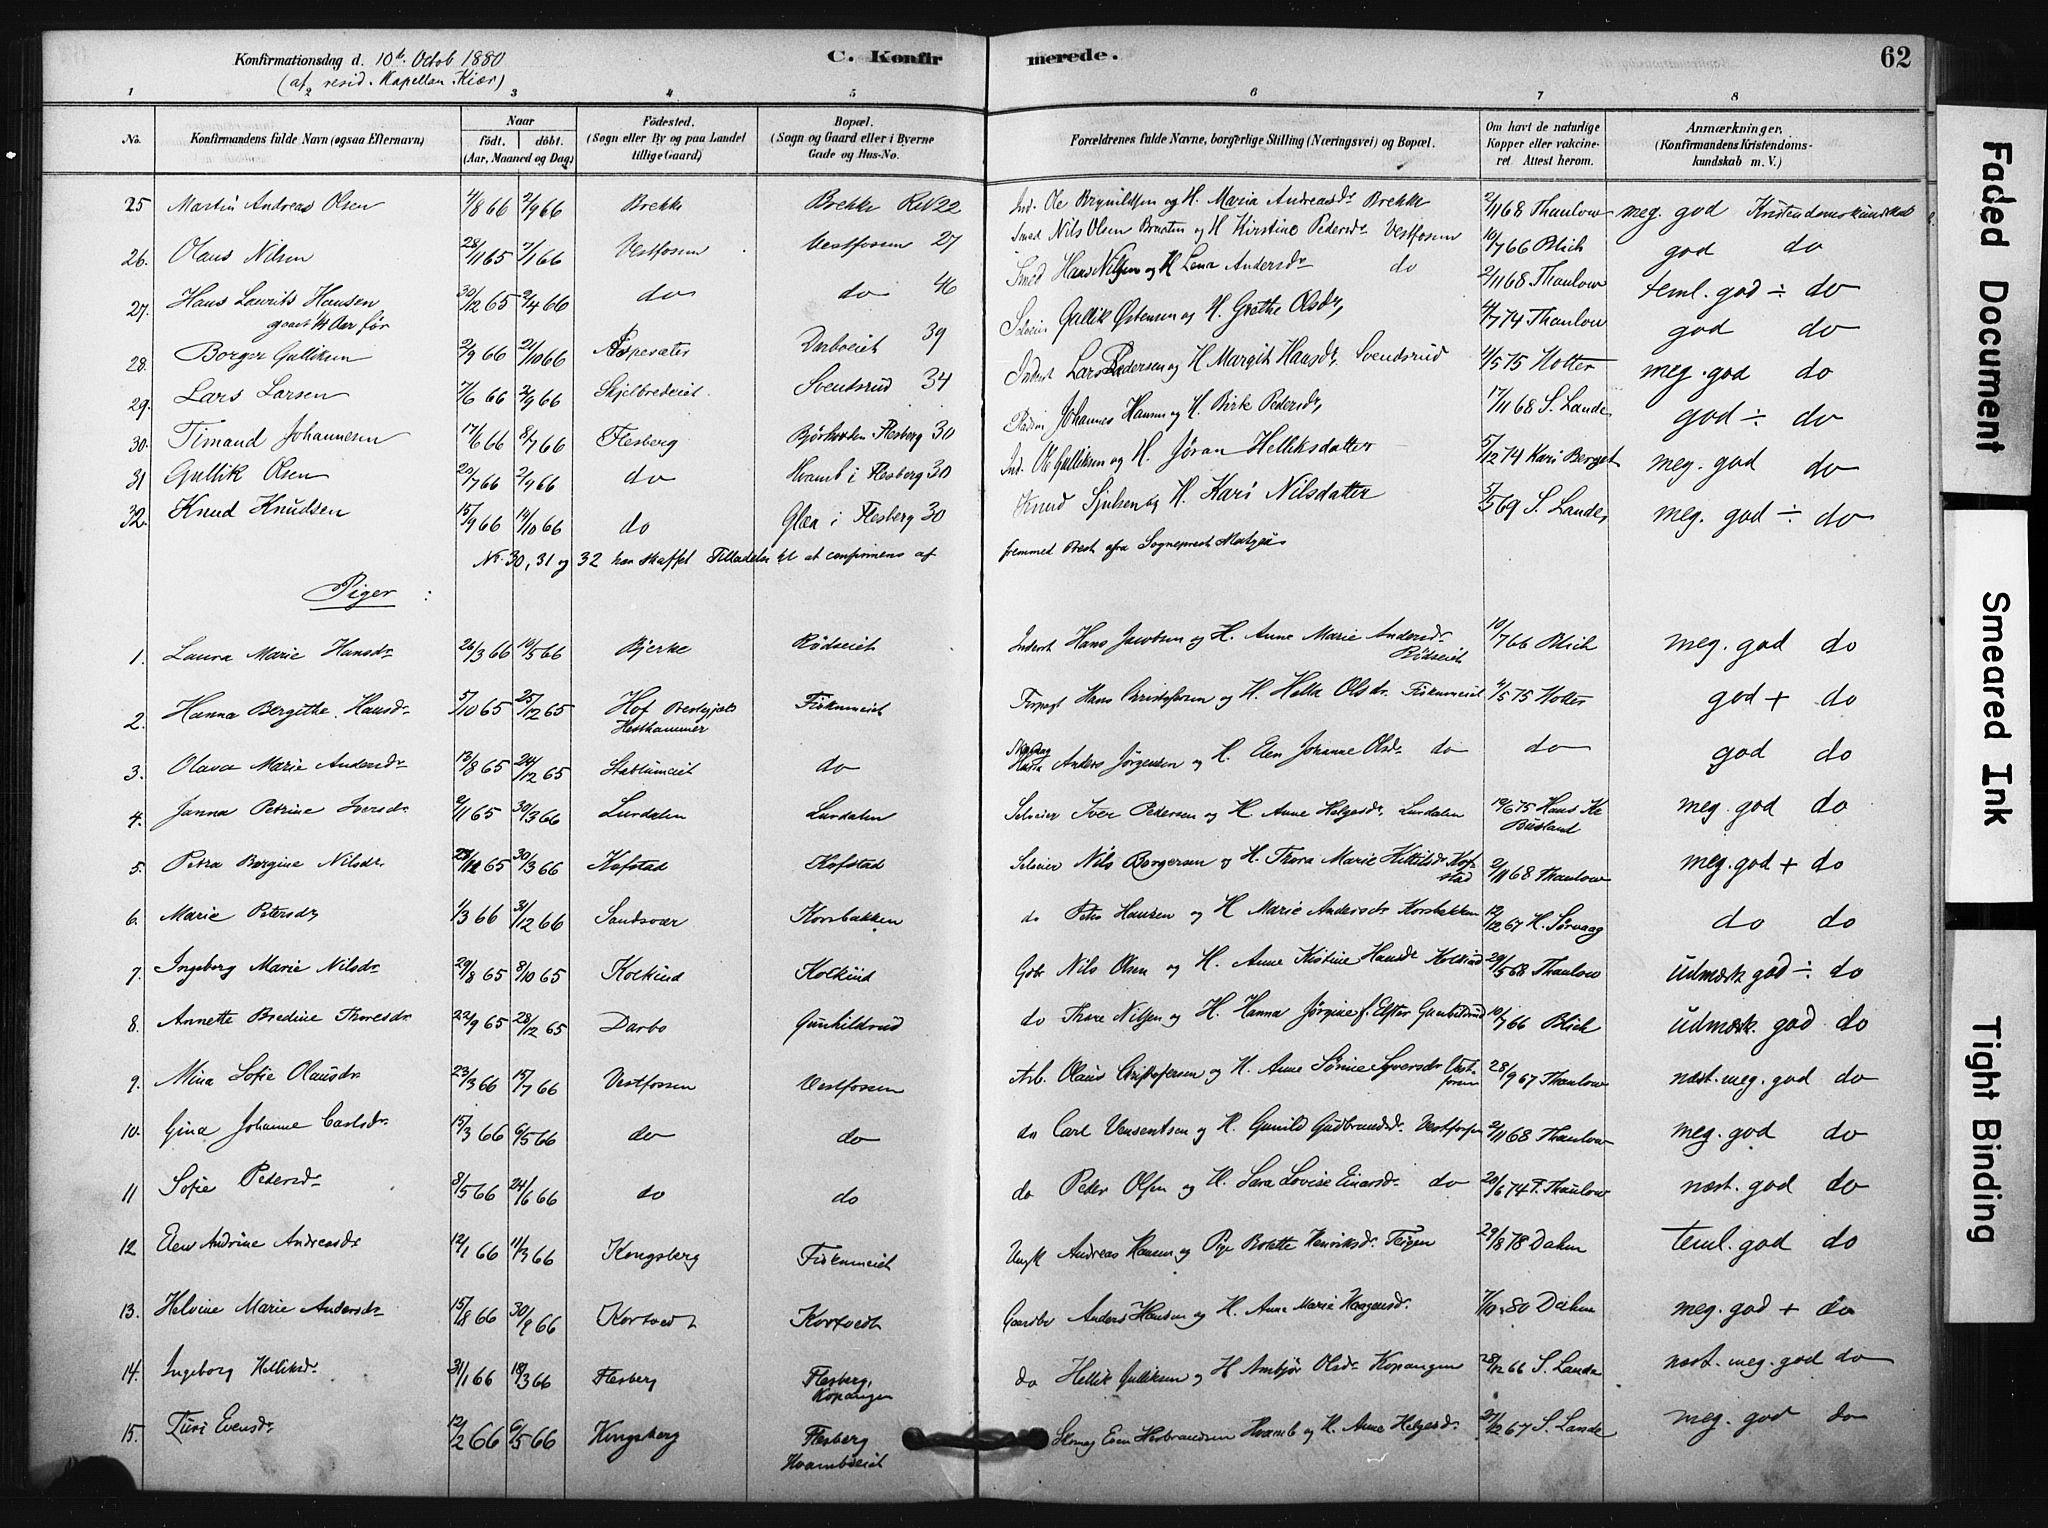 Konfirmationsdag d. 10de Octob 1880
(af resid. Kapellan Kiær)
C. Konfirmerede.
62
1 2 3 4 5 6 7 8
No. Konfirmandens fulde Navn (ogsaa Efternavn) Naar födt. döbt. (Aar, Maaned og Dag) Födested. (Sogn eller By og paa Landet tillige Gaard) Bopæl. (Sogn og Gaard eller i Byerne Gade og Hus-No. Forældrenes fulde Navne, borgerlige Stilling (Næringsvei) og Bopæl. Om havt de naturlige Kopper eller vakcineret. Attest herom. Anmærkninger. (Konfirmandens Kristendomskundskab m. V.)
25 Martin Andreas Olsen 4/8 66 2/9 66 Brekke Brekke RN 22 Ind. Ole Brynildsen og H. Maria Andreasdr Brekke 2/11 68 Thaulow meg. god Kristendomskundskab
26. Olaus Nilsen 28/11 65 7/1 66 Vestfossen Vestfossen 27 Smed Nils Olsen og H. Kirstine Pedersdr Vestfossen 10/7 66 Blich god do
27. Hans Laurits Hansen 30/12 65 2/4 66 do do 46 Smed Hans Nilsen og H. Lena Andersdr do 2/11 68 Thaulow teml. god ÷ do
28. Borger Gulliksen 2/9 66 21/10 66 Aspesæter Darboeiet 39 Selveier Gullik Østensen og H. Grethe Olsdr, 4/7 74 Thaulow god do
29. Lars Larsen 7/6 66 2/9 66 Skjelbredeiet Svendsrud 34 Inderst Lars Pedersen og H. Margit Hansdr. Svendsrud 4/5 75 Hotter meg. god do
30. Timand Johannesen 17/6 66 8/7 66 Flesberg Flesberg 30 Johannes Hansen og H. Birte Pedersdr, 17/11 68 S. Lande, god ÷ do
31 Gullik Olsen 20/7 66 2/9 66 do Hvamb i Flesberg 30 Ind. Ole Gulliksen og H. Jøran Helliksdatter 5/12 74 Kari Berget meg. god do
32. Knud Knudsen 15/9 66 14/10 66 do Glea i Flesberg 30 Knud og H. Kari Nilsdatter 5/5 69 S. Lande, meg. god ÷ do
Nr. 30, 31 og 32 har skaffet Tilladelse til at confirmeres af fremmed Præst fra Sogneprest
Piger :
1. Laura Marie Hansdr 26/3 66 10/5 66 Bjerke Rødseiet Inderst Hans Jacobsen og H. Anne Marie Andersdr Rødseiet 10/7 66 Blich meg. god do
2. Hanna Bergithe Hansdr 5/10 65 25/12 65 Hof Prestegjeld Hesthammer Fiskumeiet Forpagt Hans Christofersen og H. Helle Olsdr. Fiskumeiet 4/5 75 Hotter god + do
3. Olava Marie Andersdr 13/8 65 24/12 65 Stablumeiet do Anders Jørgensen og H. Elen Johanne Olsdr. do do god do
4. Janna Petrine Iversdr 9/11 65 30/3 66 Lurdalen Lurdalen Selveier Iver Pedersen og H. Anne Helgesdr. Lurdalen 19/6 75 Hans Kr Busland meg. god do
5. Petra Bergine Nilsdr 25/12 65 30/3 66 Kofstad Kofstad Selveier Nils Borgersen og H. Thora Marie Kittilsdr Kofstad 2/11 68 Thaulow meg. god + do
6. Marie Petersdr 1/3 66 31/12 66 Sandsvær Korsbakken do Peter Hansen og H. Marie Andersdr Korsbakken 12/12 67 H. Sørvaag do do
7. Ingeborg Marie Nilsdr 29/8 65 8/10 65 Kolkind Kolkind Gbr Nils Olsen og H. Anne Kistine Hansdr Kolkind 29/5 68 Thaulow udmærk god ÷ do
8. Annette Bredine Thoresdr 22/9 65 28/12 65 Darbo Gunhildrud do Thore Nilsen og H. Hanna Jørgine f. Elster Gunhildrud 10/7 66 Blich udmærk. god do
9. Mina Sofie Olausdr 23/3 66 15/7 66 Vestfossen Vestfossen Arb. Olaus Christofersen og H. Anne Sørine Syversdr Vestfossen 28/9 67 Thaulow næst. meg. god do
10. Gina Johanne Carlsdr 15/3 66 6/5 66 do do do Carl Vensentsen og H. Gunild Gudbrandsdr. Vestfossen 2/11 68 Thaulow meg. god do
11 Sofie Pedersdr 8/5 66 24/6 66 do do do Peder Olsen og H. Sara Lovise Einarsdr do 20/6 74 F. Thaulow næst. god do
12 Elen Andrine Andreasdr 12/1 66 11/3 66 Kongsberg Fiskumeiet Ungk Andreas Hansen og Pige Bolette Henriksdr. Teigen 29/8 78 Dahm teml. god do
13. Helvine Marie Andersdr 15/8 66 30/9 66 Kortvedt Kortvedt Gaardbr Anders Hansen og H. Anne Marie Haagensdr. 7/10 80 Dahm meg. god + do
14. Ingeborg Helliksdr 31/1 66 18/3 66 Flesberg Flesberg, Kopangen do Hellik Gulliksen og H. Ambjør Olsdr Kopangen 28/12 66 S. Lande næst. meg. god do
15. Turi Evensdr 12/2 66 6/5 66 Kongsberg Flesberg Hvambseiet Skomag Even Hesbrandsen Hvamb og H. Anne Helgesdr. 27/12 67 S. Lande meg. god do
Faded Document
Smeared Ink
Tight Binding